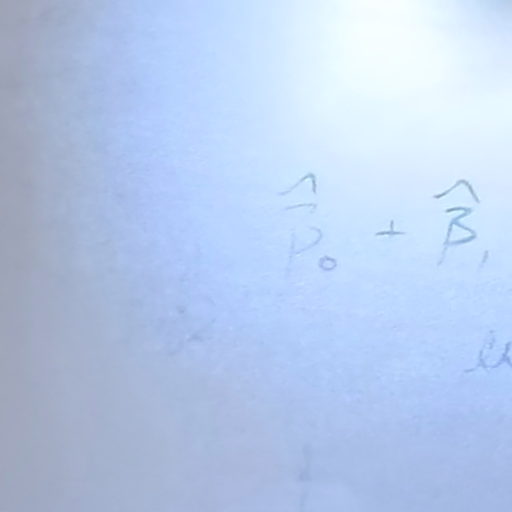 β̂₀ + β̂₁